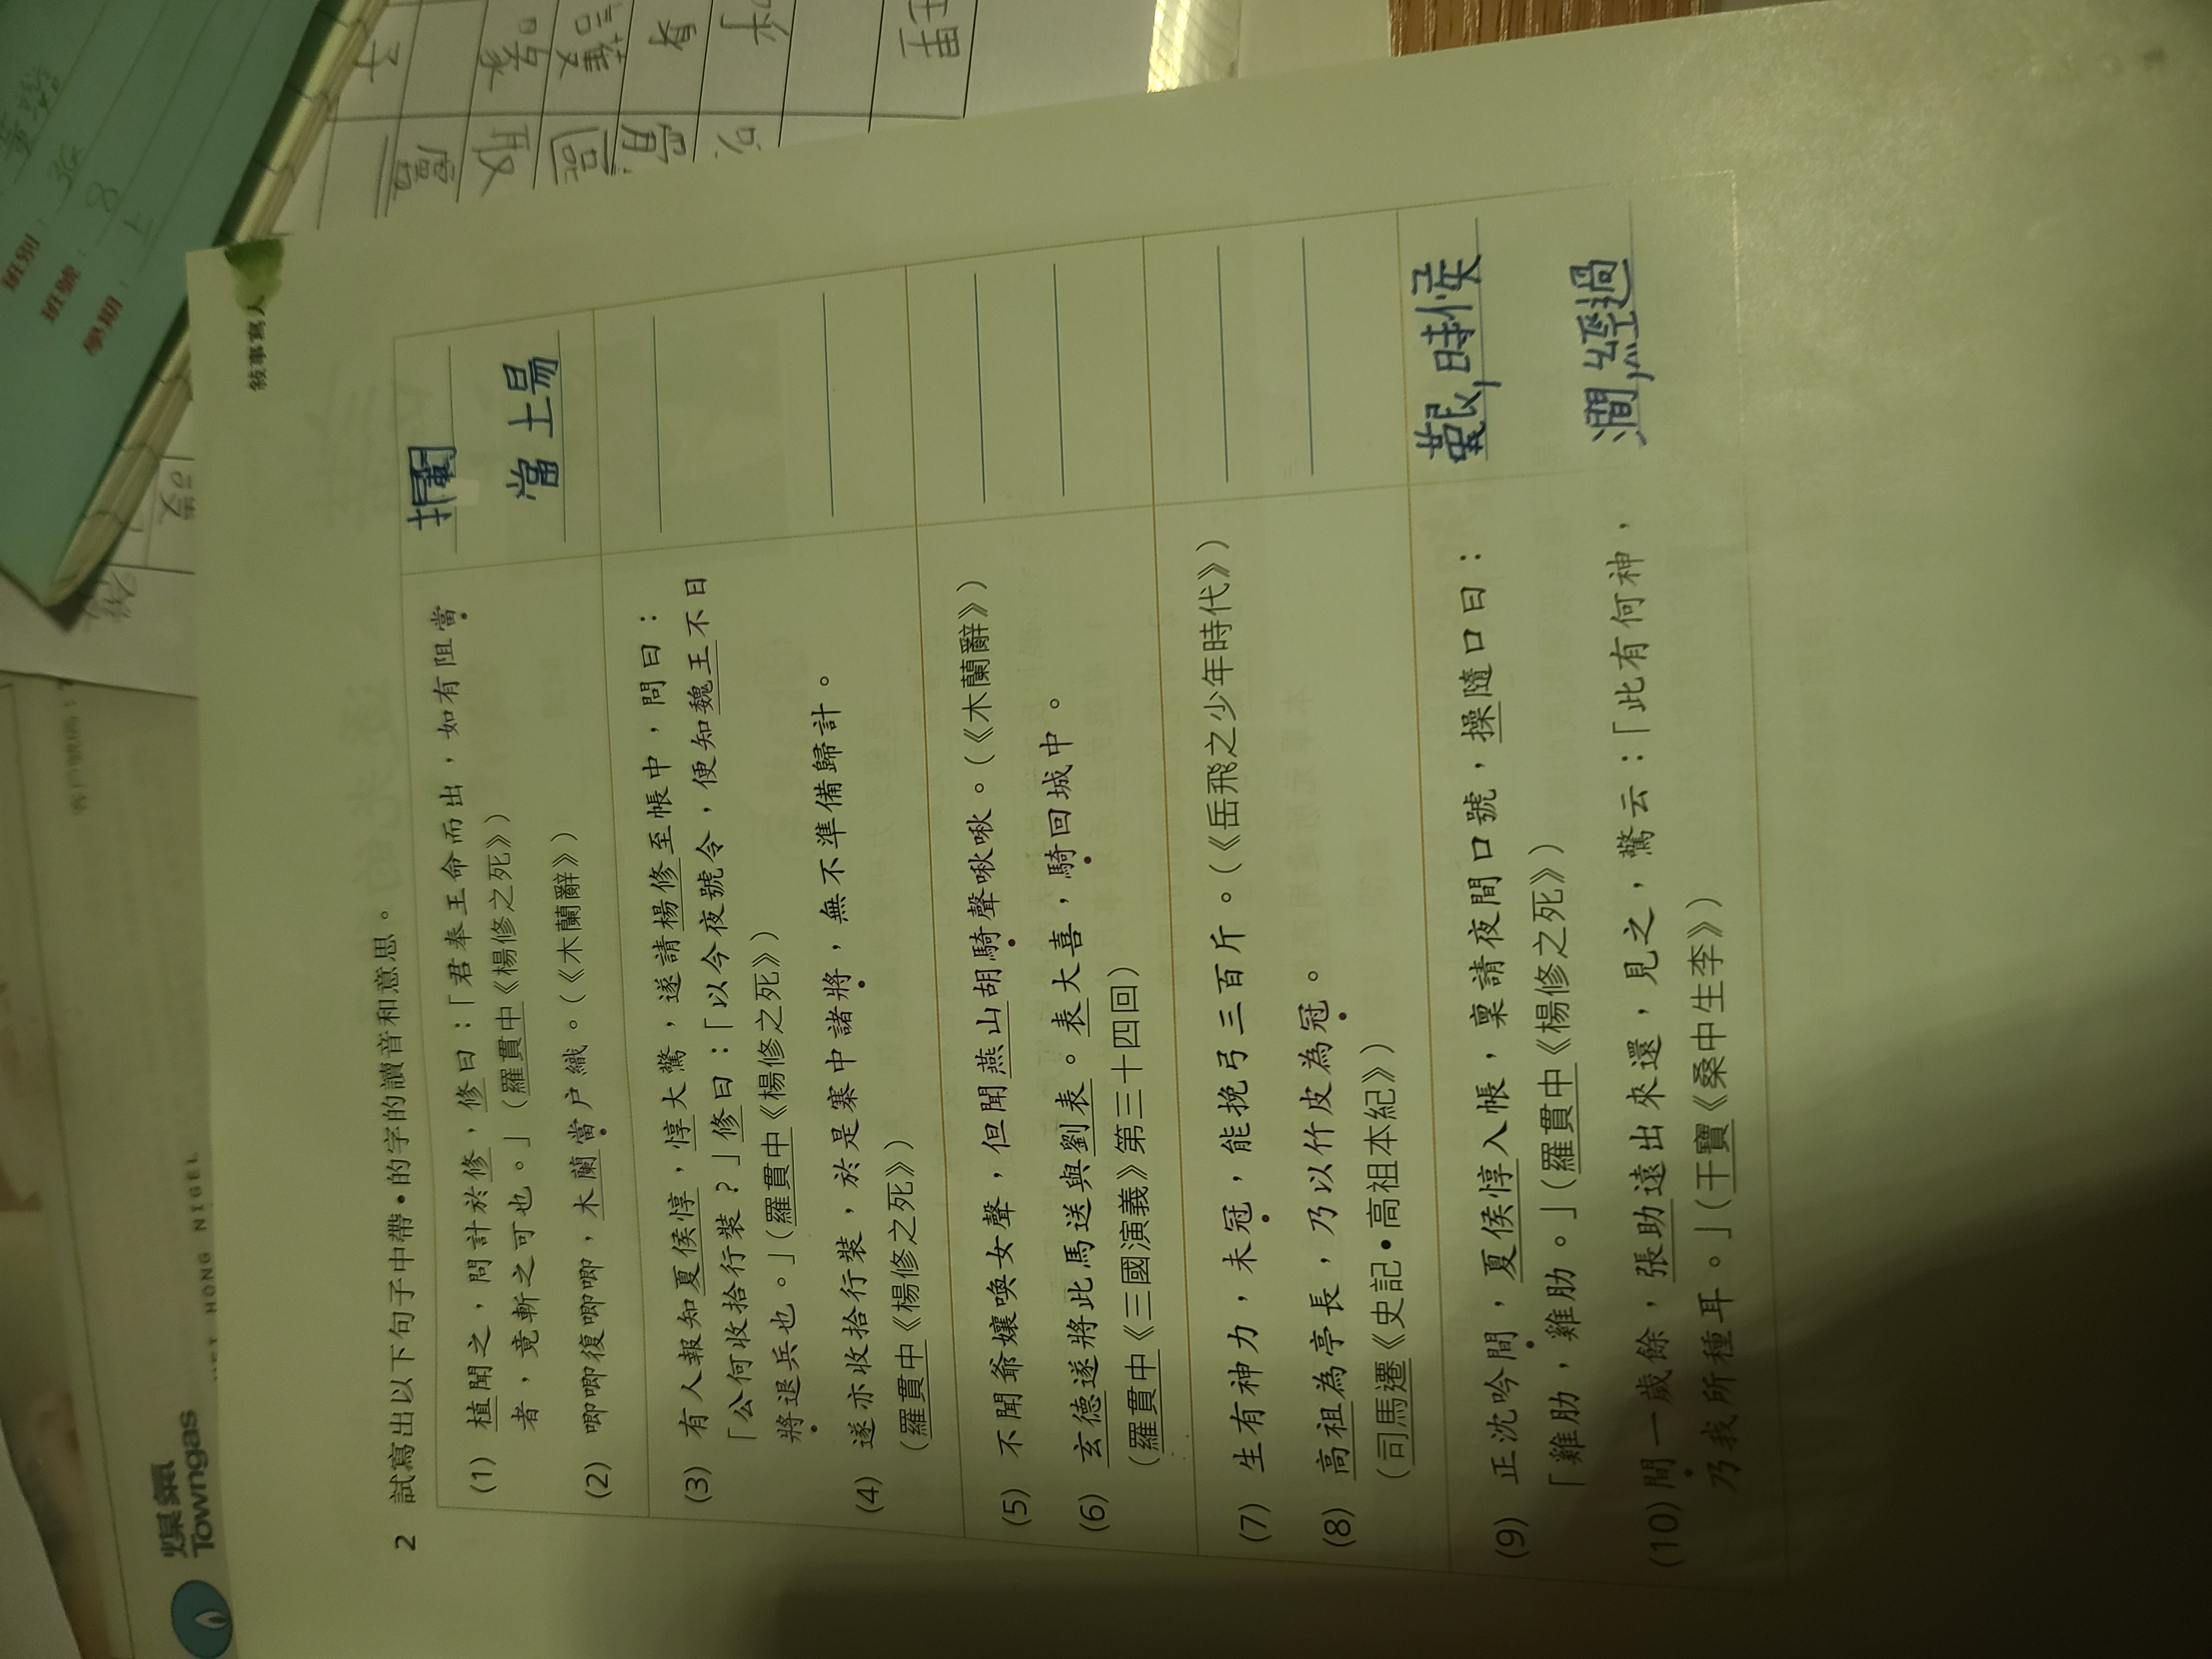 煤氣
Towngas
HONG NIGEL
客戶號碼：
班別：3G
班號：8
學期：下
敍事寫人
2 試寫出以下句子中帶•的字的讀音和意思。
(1) 植聞之，問計於修，修曰：「君奉王命而出，如有阻當
者，竟斬之可也。」（羅貫中《楊修之死》）
攔
(2) 唧唧復唧唧，木蘭當户織。（《木蘭辭》）
當 土昜
(3) 有人報知夏侯惇，惇大驚，遂請楊修至帳中，問曰：
「公何收拾行裝？」修曰：「以今夜號令，便知魏王不日
將退兵也。」（羅貫中《楊修之死》）
(4) 遂亦收拾行裝，於是寨中諸將，無不準備歸計。
（羅貫中《楊修之死》）
(5) 不聞爺孃喚女聲，但聞燕山胡騎聲啾啾。（《木蘭辭》）
(6) 玄德遂將此馬送與劉表。表大喜，騎回城中。
（羅貫中《三國演義》第三十四回）
(7) 生有神力，未冠，能挽弓三百斤。（《岳飛之少年時代》）
(8) 高祖為亭長，乃以竹皮為冠。
（司馬遷《史記•高祖本紀》）
(9) 正沈吟間，夏侯惇入帳，稟請夜間口號，操隨口曰：
「雞肋，雞肋。」（羅貫中《楊修之死》）
艱,時候
(10) 間一歲餘，張助遠出來還，見之，驚云：「此有何神，
乃我所種耳。」（干寶《桑中生李》）
澗,經過